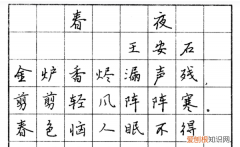 春夜
王安石
金炉香烬漏声残，
剪剪轻风阵阵寒。
春色恼人眠不得